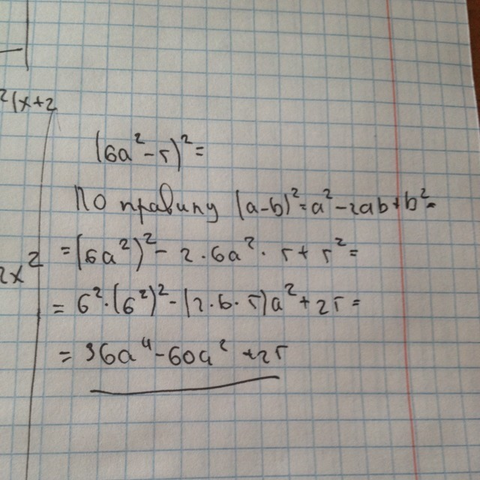 ²(x+2
(6a²-5)²=
По правилу (a-b)²=a²-2ab+b²=
=(6a²)²-2·6a²·5+5²=
2x²
=6²·(6²)²-(2·6·5)a²+25=
=36a⁴-60a²+25